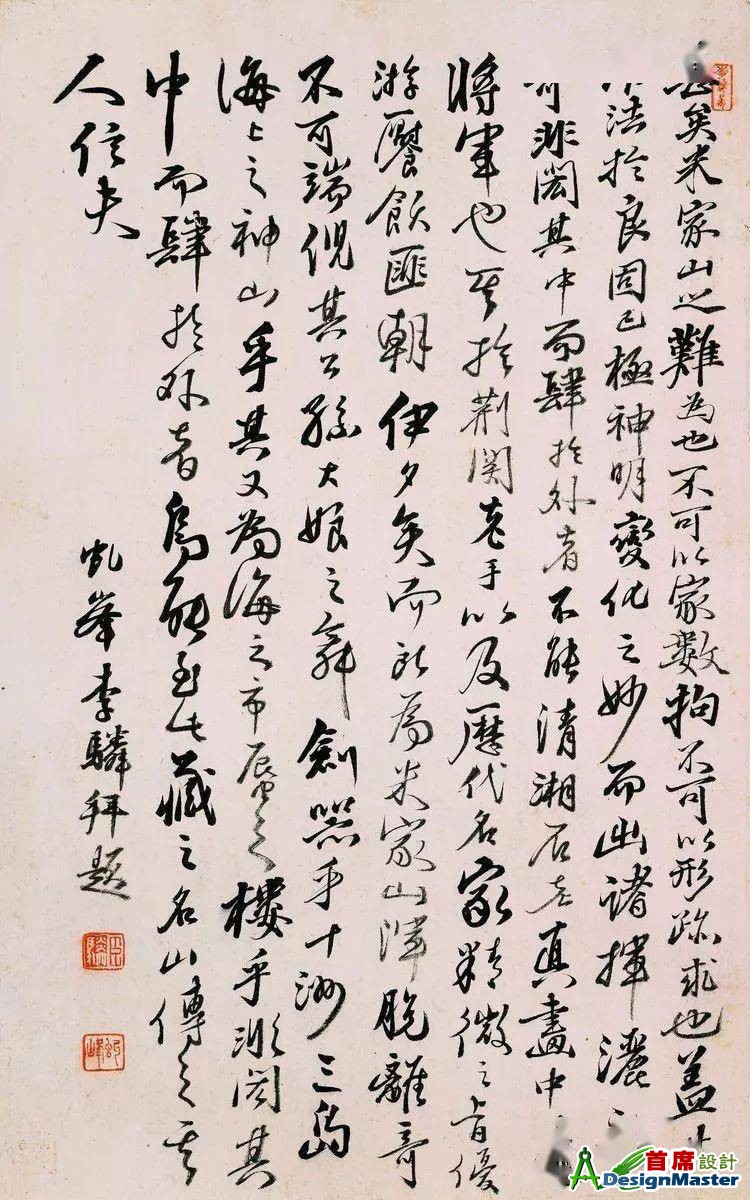 甚矣米家山之難為也不可以家數拘不可以形跡求也盖其
法於良固已極神明變化之妙而出諸揮灑之
非閎其中而肆於外者不能清湘石老真畫中
將軍也其於荆関老手以及歷代名家精微之旨優
游饜飫匪朝伊夕矣而所為米家山渾脫離奇
不可端倪其公孫大娘之舞劍器乎十洲三島
海上之神山乎其又為海之市蜃之樓乎非閎其
中而肆於外者烏能至此藏之名山傳之其
人信夫
虬峯李驎拜題
虬峰
首席設計
ADesignMaster